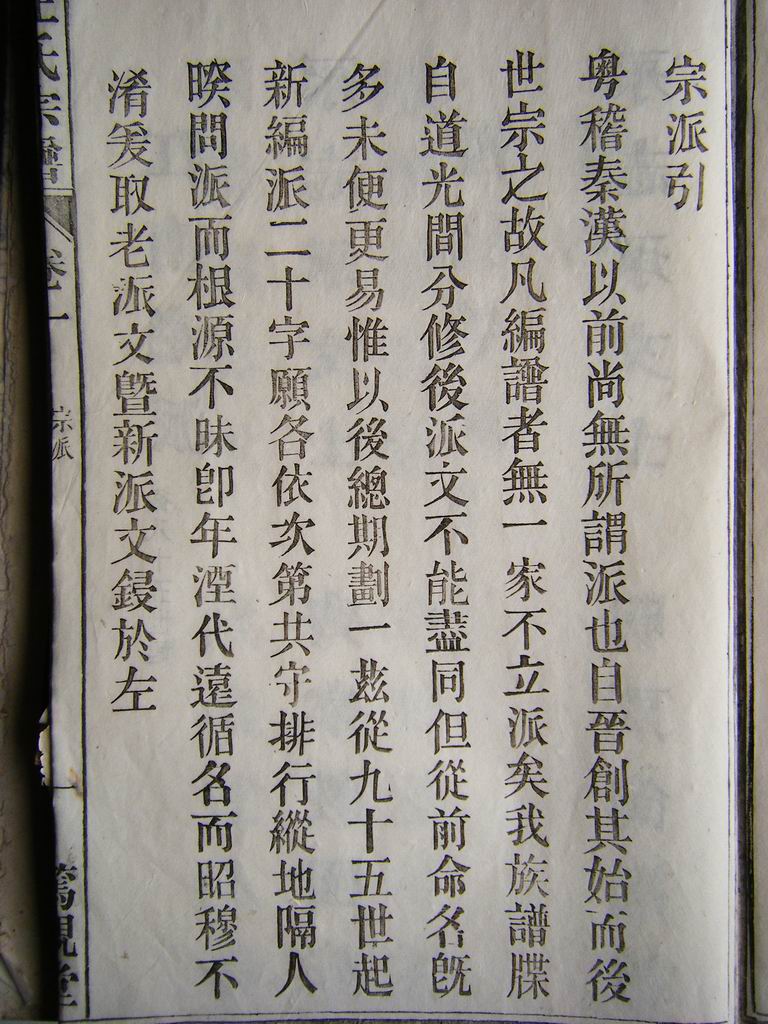 宗派引
粤稽秦漢以前尚無所謂派也自晉創其始而後
世宗之故凡編譜者無一家不立派矣我族譜牒
自道光間分修後派文不能盡同但從前命名旣
多未便更易惟以後總期劃一茲從九十五世起
新編派二十字願各依次第共守排行縱地隔人
暌問派而根源不昧卽年湮代遠循名而昭穆不
淆爰取老派文曁新派文鋟於左
氏宗譜
卷一
宗派